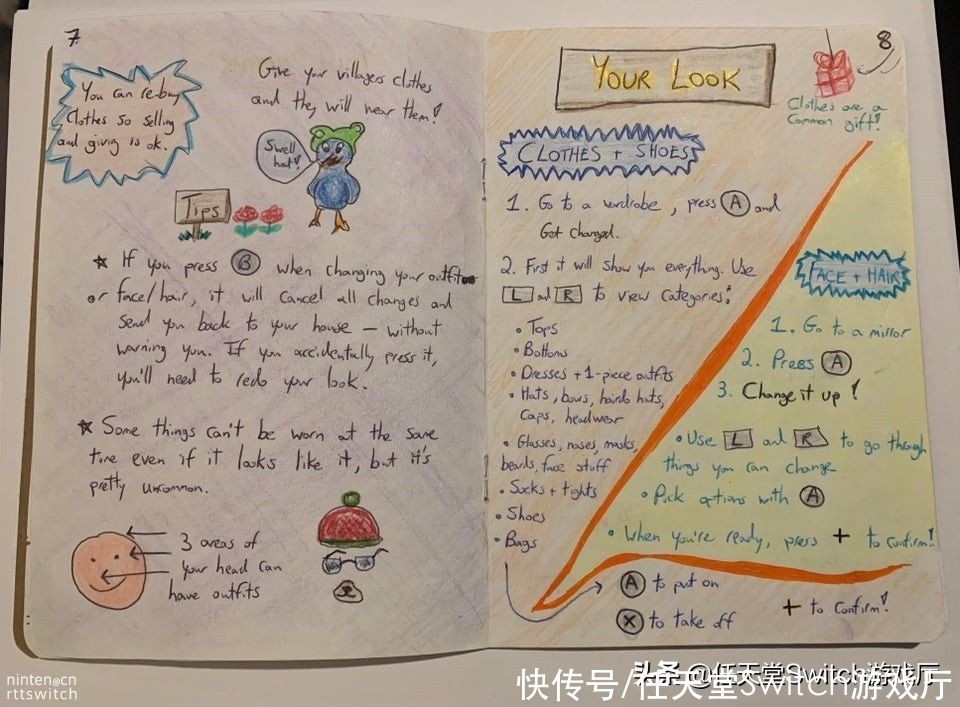 7
You can re-buy
Clothes so selling
and giving is ok.
Give your villagers clothes
and they will wear them!
Swell
hat!
Tips
★ If you press B when changing your outfit
or face/hair, it will cancel all changes and
Send you back to your house – without
warning you. If you accidentally press it,
you'll need to redo your look.
★ Some things can't be worn at the same
time even if it looks like it, but it's
pretty uncommon.
3 areas of
your head can
have outfits
8
YOUR LOOK
Clothes are a
Common gift!
CLOTHES + SHOES
1. Go to a wardrobe, press A and
Get changed.
2. First it will show you everything. Use
L and R to view categories:
• Tops
• Bottoms
• Dresses + 1-piece outfits
• Hats, bows, hairdo hats,
Caps, headwear
• Glasses, noses, masks,
beards, face stuff
• Socks + tights
• Shoes
• Bags
A to put on
X to take off
+ to Confirm!
FACE + HAIR
1. Go to a mirror
2. Press A
3. Change it up!
• Use L and R to go through
things you can change
• Pick options with A
• When you're ready, press + to confirm!
ninten@cn
rttswitch
头条 @任天堂Switch游戏厅
快传号/任天堂Switch游戏厅